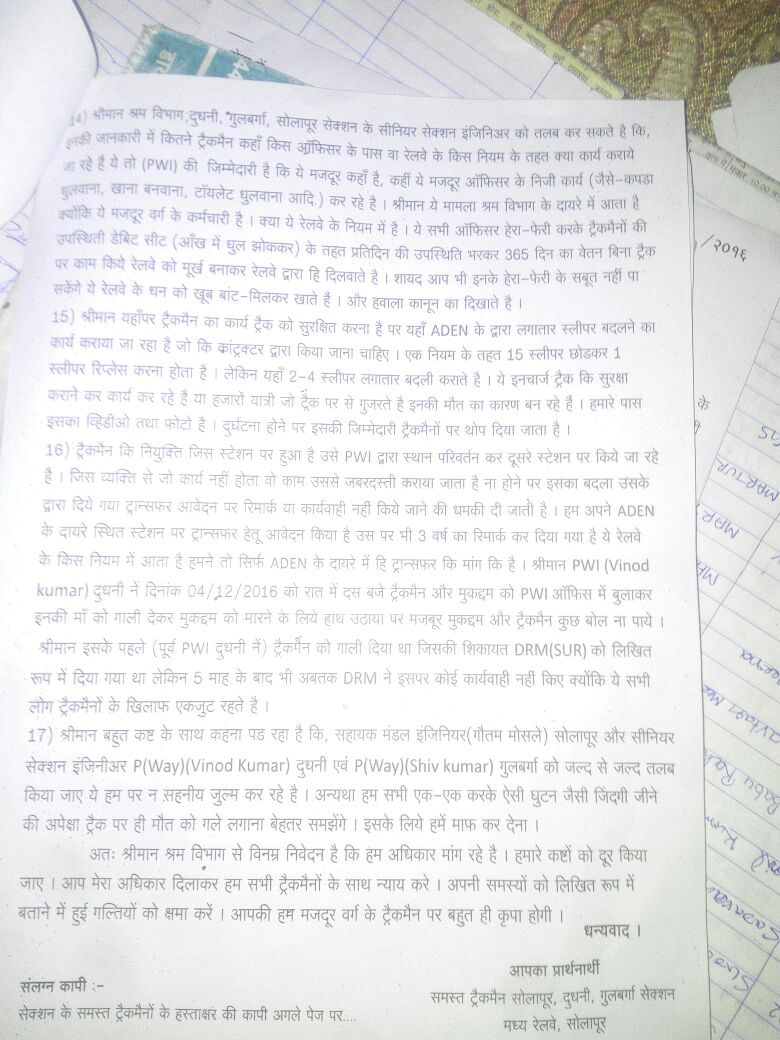 14) श्रीमान श्रम विभाग,दुधनी, गुलबर्गा, सोलापूर सेक्शन के सीनियर सेक्शन इंजिनिअर को तलब कर सकते है कि,
इनकी जानकारी में कितने ट्रैकमैन कहाँ किस ऑफिसर के पास वा रेलवे के किस नियम के तहत क्या कार्य कराये
जा रहे है ये तो (PWI) की जिम्मेदारी है कि ये मजदूर कहाँ है, कहीं ये मजदूर ऑफिसर के निजी कार्य (जैसे-कपडा
धुलवाना, खाना बनवाना, टॉयलेट धुलवाना आदि.) कर रहे है । श्रीमान ये मामला श्रम विभाग के दायरे में आता है
क्योंकि ये मजदूर वर्ग के कर्मचारी है । क्या ये रेलवे के नियम में है । ये सभी ऑफिसर हेरा-फेरी करके ट्रैकमैनों की
उपस्थिती डेबिट सीट (आँख में धुल झोककर) के तहत प्रतिदिन की उपस्थिति भरकर 365 दिन का वेतन बिना ट्रैक
पर काम किये रेलवे को मूर्ख बनाकर रेलवे द्वारा हि दिलवाते है । शायद आप भी इनके हेरा-फेरी के सबूत नहीं पा
सकेंगे ये रेलवे के धन को खूब बांट-मिलकर खाते है । और हवाला कानून का दिखाते है ।
15) श्रीमान यहाँपर ट्रैकमैन का कार्य ट्रैक को सुरक्षित करना है पर यहाँ ADEN के द्वारा लगातार स्लीपर बदलने का
कार्य कराया जा रहा है जो कि कांट्रक्टर द्वारा किया जाना चाहिए । एक नियम के तहत 15 स्लीपर छोडकर 1
स्लीपर रिप्लेस करना होता है । लेकिन यहाँ 2-4 स्लीपर लगातार बदली कराते है । ये इनचार्ज ट्रैक कि सुरक्षा
कराने कर कार्य कर रहे है या हजारों यात्री जो ट्रैक पर से गुजरते है इनकी मौत का कारण बन रहे है । हमारे पास
इसका व्हिडीओ तथा फोटो है । दुर्घटना होने पर इसकी जिम्मेदारी ट्रैकमैनों पर थोप दिया जाता है ।
16) ट्रैकमैन कि नियुक्ति जिस स्टेशन पर हुआ है उसे PWI द्वारा स्थान परिवर्तन कर दूसरे स्टेशन पर किये जा रहे
है । जिस व्यक्ति से जो कार्य नहीं होता वो काम उससे जबरदस्ती कराया जाता है ना होने पर इसका बदला उसके
द्वारा दिये गया ट्रान्सफर आवेदन पर रिमार्क या कार्यवाही नहीं किये जाने की धमकी दी जाती है । हम अपने ADEN
के दायरे स्थित स्टेशन पर ट्रान्सफर हेतू आवेदन किया है उस पर भी 3 वर्ष का रिमार्क कर दिया गया है ये रेलवे
के किस नियम में आता है हमने तो सिर्फ ADEN के दायरे में हि ट्रान्सफर कि मांग कि है । श्रीमान PWI (Vinod
kumar) दुधनी नें दिनांक 04/12/2016 को रात में दस बजे ट्रैकमैन और मुकद्दम को PWI ऑफिस में बुलाकर
इनकी माँ को गाली देकर मुकद्दम को मारने के लिये हाथ उठाया पर मजबूर मुकद्दम और ट्रैकमैन कुछ बोल ना पाये ।
श्रीमान इसके पहले (पूर्व PWI दुधनी नें) ट्रैकमैन को गाली दिया था जिसकी शिकायत DRM(SUR) को लिखित
रूप में दिया गया था लेकिन 5 माह के बाद भी अबतक DRM ने इसपर कोई कार्यवाही नहीं किए क्योंकि ये सभी
लोग ट्रैकमैनों के खिलाफ एकजुट रहते है ।
17) श्रीमान बहुत कष्ट के साथ कहना पड रहा है कि, सहायक मंडल इंजिनियर(गौतम मोसले) सोलापूर और सीनियर
सेक्शन इंजिनीअर P(Way)(Vinod Kumar) दुधनी एवं P(Way)(Shiv kumar) गुलबर्गा को जल्द से जल्द तलब
किया जाए ये हम पर न सहनीय जुल्म कर रहे है । अन्यथा हम सभी एक-एक करके ऐसी घुटन जैसी जिंदगी जीने
की अपेक्षा ट्रैक पर ही मौत को गले लगाना बेहतर समझेंगे । इसके लिये हमें माफ कर देना ।
अतः श्रीमान श्रम विभाग से विनम्र निवेदन है कि हम अधिकार मांग रहे है । हमारे कष्टों को दूर किया
जाए । आप मेरा अधिकार दिलाकर हम सभी ट्रैकमैनों के साथ न्याय करे । अपनी समस्यों को लिखित रूप में
बताने में हुई गल्तियों को क्षमा करें । आपकी हम मजदूर वर्ग के ट्रैकमैन पर बहुत ही कृपा होगी ।
धन्यवाद ।
आपका प्रार्थनार्थी
संलग्न कापी :-
समस्त ट्रैकमैन सोलापूर, दुधनी, गुलबर्गा सेक्शन
सेक्शन के समस्त ट्रैकमैनों के हस्ताक्षर की कापी अगले पेज पर....
मध्य रेलवे, सोलापूर
/२०१६
के
MARTUR
MAR